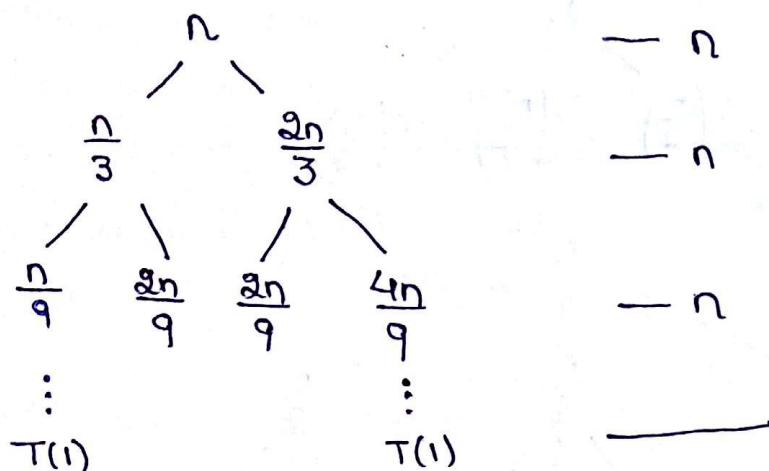 n — n
n/3 2n/3 — n
n/9 2n/9 2n/9 4n/9 — n
⋮ ⋮
T(1) T(1)